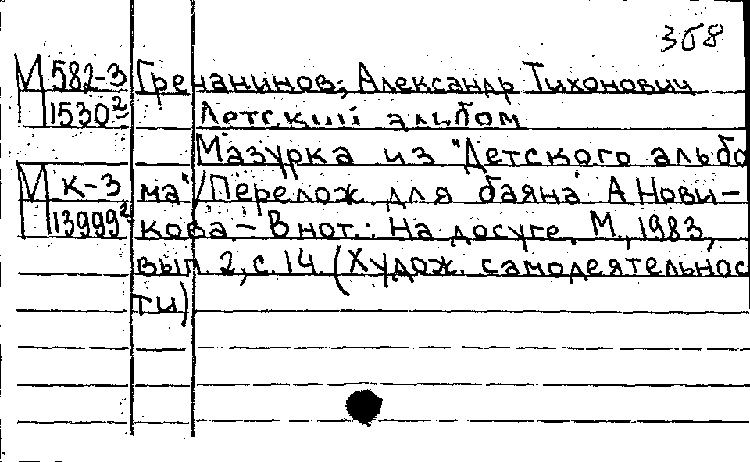 358
М 582-3 Гречанинов, Александр Тихонович
1530² Детский альбом
Мазурка из "Детского альбо
М К-3 ма" / Перелож. для баяна А. Нови-
13999² кова. - В нот.: На досуге. М., 1983,
вып. 2, с. 14. (Худож. самодеятельнос
ти)